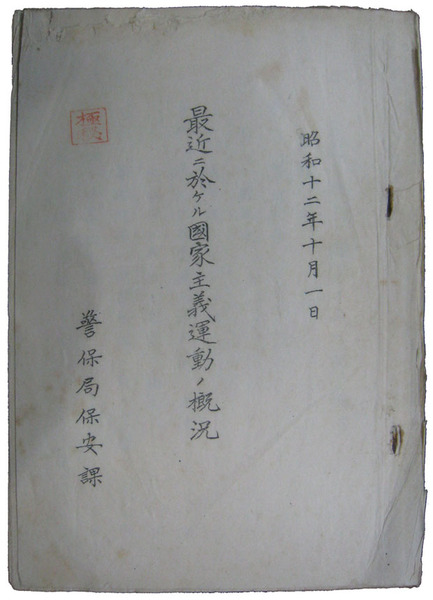 昭和十二年十月一日
最近ニ於ケル國家主義運動ノ概況
極秘
警保局保安課